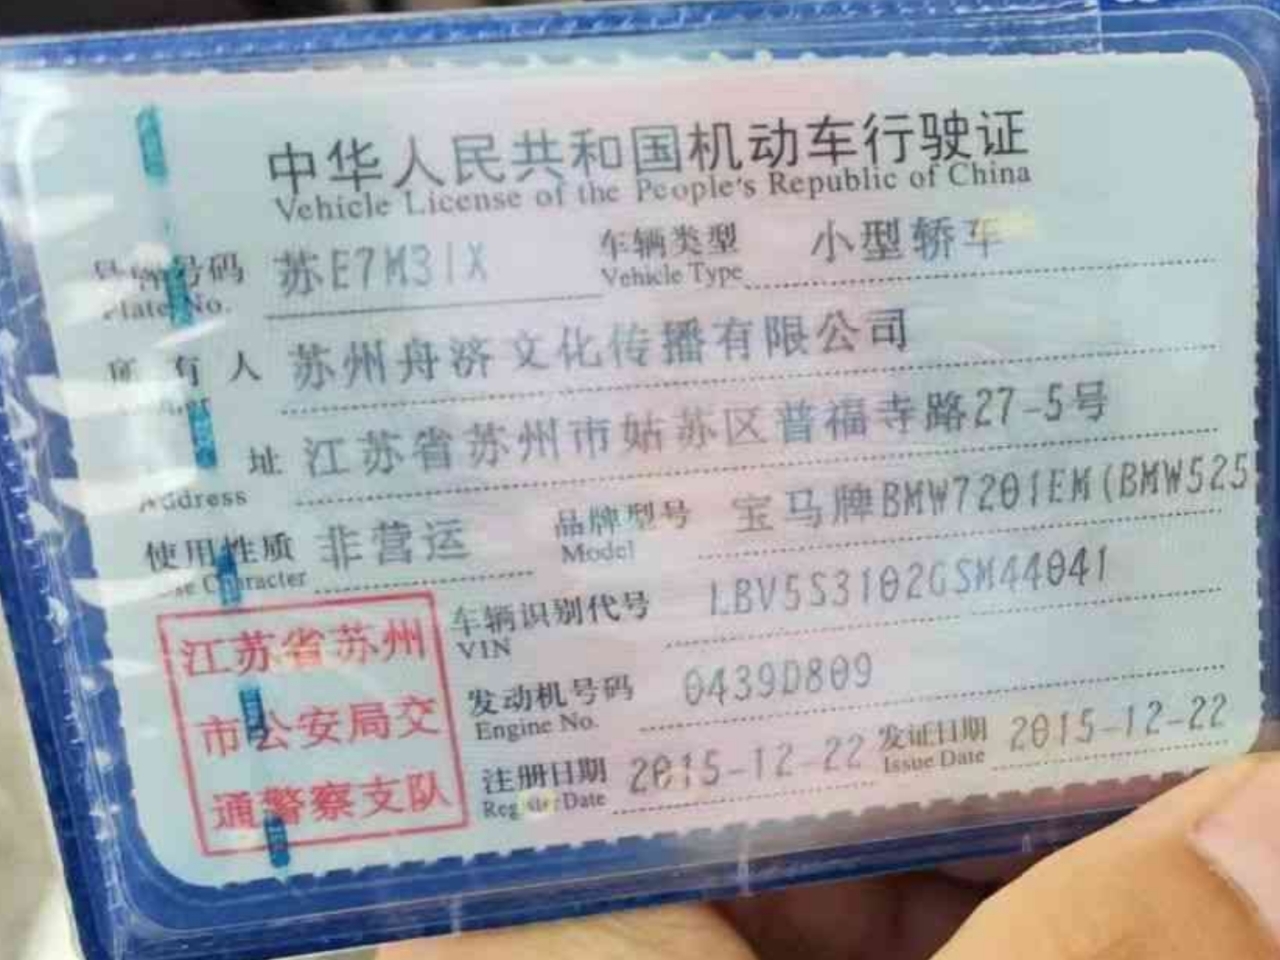 中华人民共和国机动车行驶证
Vehicle License of the People's Republic of China
号牌号码 苏E7M31X 车辆类型 小型轿车
Plate No. Vehicle Type
所有人 苏州舟济文化传播有限公司
址 江苏省苏州市姑苏区普福寺路27-5号
Address
使用性质 非营运 品牌型号 宝马牌BMW7201EM(BMW525
Use Character Model
车辆识别代号 LBV5S3102GSM44041
VIN
发动机号码 0439D809
Engine No.
注册日期 2015-12-22 发证日期 2015-12-22
Register Date Issue Date
江苏省苏州
市公安局交
通警察支队